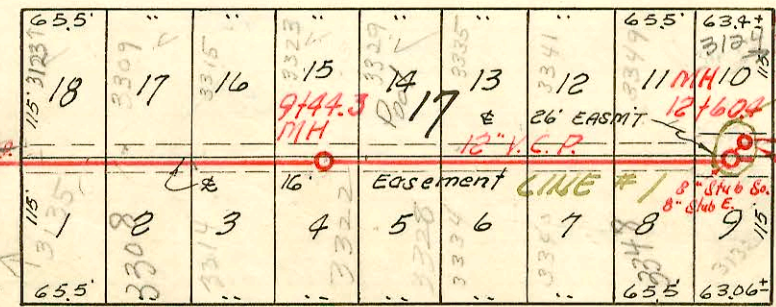 65.5' " " " " " " 65.5' 63.4±
3123 3309 3315 3323 3329 3335 3341 3349 312
115' 18 17 16 15 14 13 12 11 10 115'
MH
Pool 17
9+44.3 ℄ 26' EASM'T. 12+60.4
MH
12" V.C.P.
℄ 16' Easement LINE #1 8" Stub So.
8" Stub E.
115' 1 2 3 4 5 6 7 8 9 115'
3135 3308 3314 3322 3328 3334 3340 3348
65.5' " " " " " " 65.5 63.06±